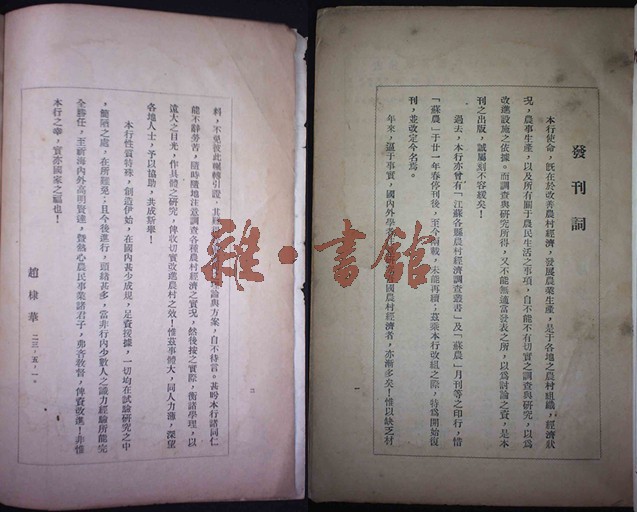 發刊詞
本行使命，旣在於改善農村經濟，發展農業生產，是于各地之農村組織，經濟狀
況，農事生產，以及所有關于農民生活之事項，自不能不有切實之調查與研究，以爲
改進設施之依據。而調查與研究所得，又不能無適當發表之所，以爲討論之資，是本
刊之出版，誠屬刻不容緩矣！
過去，本行亦曾有「江蘇各縣農村經濟調查叢書」及「蘇農」月刊等之印行，惜
「蘇農」于廿一年春停刊後，至今兩載，未能再續；茲乘本行改組之際，特爲開始復
刊，並改定今名焉。
年來，逼于事實，國內外學者 國農村經濟者，亦漸多矣！惟以缺乏材
一
料，不免彼此輾轉引證，其 論與方案，自不待言。甚盼本行諸同仁
能不辭勞苦，隨時隨地注意調查各種農村經濟之實況，然後按之實際，衡諸學理，以
遠大之目光，作具體之研究，俾收切實改進農村之效！惟茲事體大，同人力薄，深望
各地人士，予以協助，共成斯舉！
本行性質特殊，創造伊始，在國內甚少成規，足資援據，一切均在試驗研究之中
，簡陋之處，在所難免；且今後進行，頭緒甚多，當非行內少數人之識力經驗所能完
全勝任，至祈海內外高明賢達，暨熱心農民事業諸君子，弗吝敎督，俾資改進！非惟
本行之幸，實亦國家之福也！
趙棣華 二三，五，一。
二
雜·書館